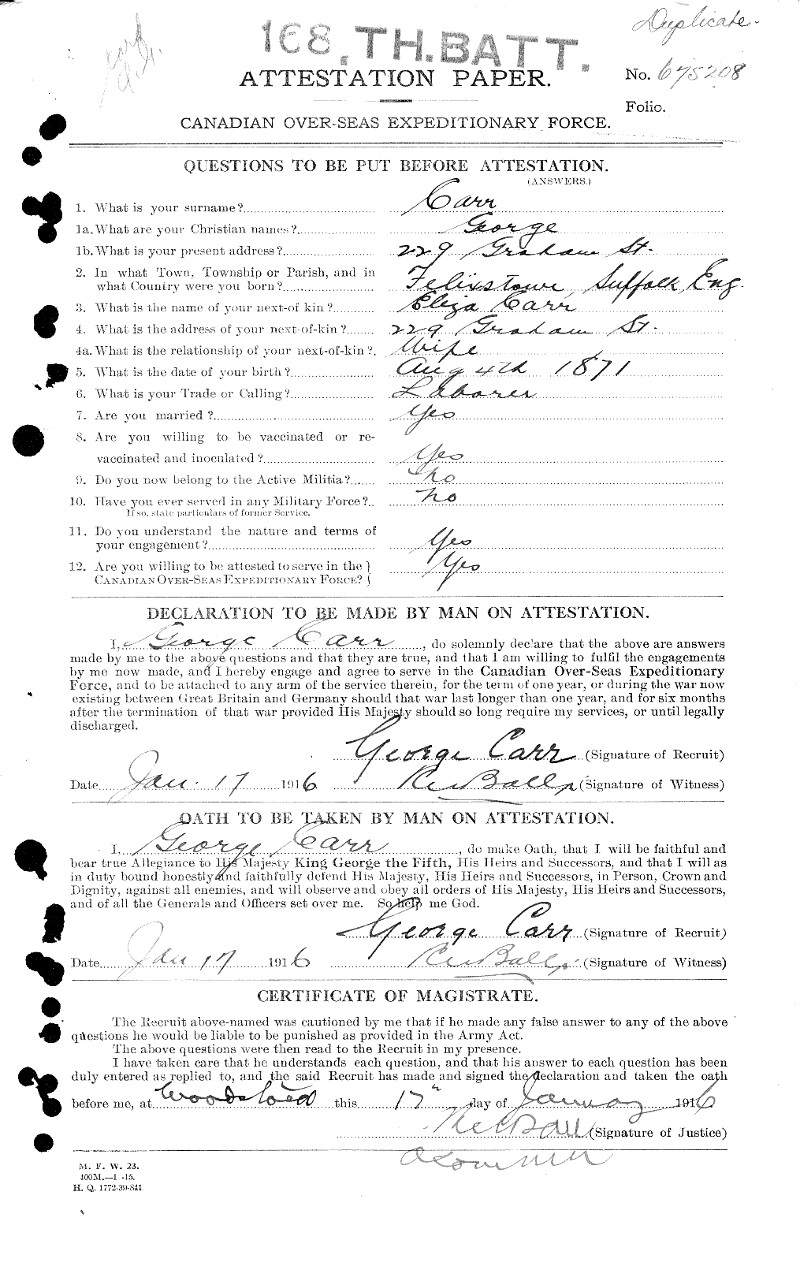 Duplicate.
168.TH.BATT.
ATTESTATION PAPER.
No. 675208
Folio.
CANADIAN OVER-SEAS EXPEDITIONARY FORCE.
QUESTIONS TO BE PUT BEFORE ATTESTATION.
(ANSWERS.)
1. What is your surname? Carr
1a. What are your Christian names? George
1b. What is your present address? 229 Graham St.
2. In what Town, Township or Parish, and in
what Country were you born? Felixstowe Suffolk, Eng.
3. What is the name of your next-of kin? Eliza Carr
4. What is the address of your next-of-kin? 229 Graham St.
4a. What is the relationship of your next-of-kin? Wife
5. What is the date of your birth? Aug 4th 1871
6. What is your Trade or Calling? Laborer
7. Are you married? Yes
8. Are you willing to be vaccinated or re-
vaccinated and inoculated? Yes
9. Do you now belong to the Active Militia? No
10. Have you ever served in any Military Force? No
If so, state particulars of former Service.
11. Do you understand the nature and terms of
your engagement? Yes
12. Are you willing to be attested to serve in the
CANADIAN OVER-SEAS EXPEDITIONARY FORCE? Yes
DECLARATION TO BE MADE BY MAN ON ATTESTATION.
I, George Carr, do solemnly declare that the above are answers
made by me to the above questions and that they are true, and that I am willing to fulfil the engagements
by me now made, and I hereby engage and agree to serve in the Canadian Over-Seas Expeditionary
Force, and to be attached to any arm of the service therein, for the term of one year, or during the war now
existing between Great Britain and Germany should that war last longer than one year, and for six months
after the termination of that war provided His Majesty should so long require my services, or until legally
discharged.
George Carr (Signature of Recruit)
Date Jan. 17 1916 Ball (Signature of Witness)
OATH TO BE TAKEN BY MAN ON ATTESTATION.
I, George Carr, do make Oath, that I will be faithful and
bear true Allegiance to His Majesty King George the Fifth, His Heirs and Successors, and that I will as
in duty bound honestly and faithfully defend His Majesty, His Heirs and Successors, in Person, Crown and
Dignity, against all enemies, and will observe and obey all orders of His Majesty, His Heirs and Successors,
and of all the Generals and Officers set over me. So help me God.
George Carr (Signature of Recruit)
Date Jan 17 1916 Ball (Signature of Witness)
CERTIFICATE OF MAGISTRATE.
The Recruit above-named was cautioned by me that if he made any false answer to any of the above
questions he would be liable to be punished as provided in the Army Act.
The above questions were then read to the Recruit in my presence.
I have taken care that he understands each question, and that his answer to each question has been
duly entered as replied to, and the said Recruit has made and signed the declaration and taken the oath
before me, at Woodstock this 17th day of January 1916
Ball (Signature of Justice)
M. F. W. 23.
400M.—1-15.
H. Q. 1772-39-841